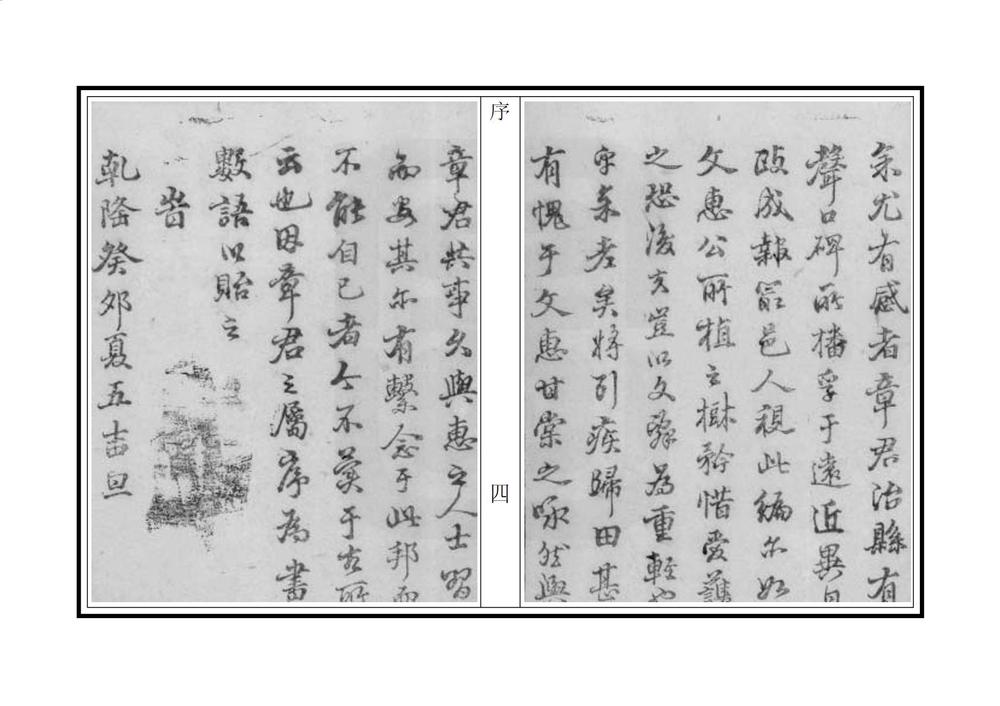 余尤有感者章君治縣有
聲口碑所播孚于遠近異日
政成報最邑人視此編亦如
文惠公所植之樹矜惜愛護
之恐後亥豈以文辭為重輕也
乎余老矣將引疾歸田甚
有愧于文惠甘棠之咏然與
序
四
章君共事久與惠之人士習
而安其亦有繫念于此邦而
不能自已者今不獲于右所
云也因章君之屬序為書
數語以貽之
皆
乾隆癸卯夏五吉旦